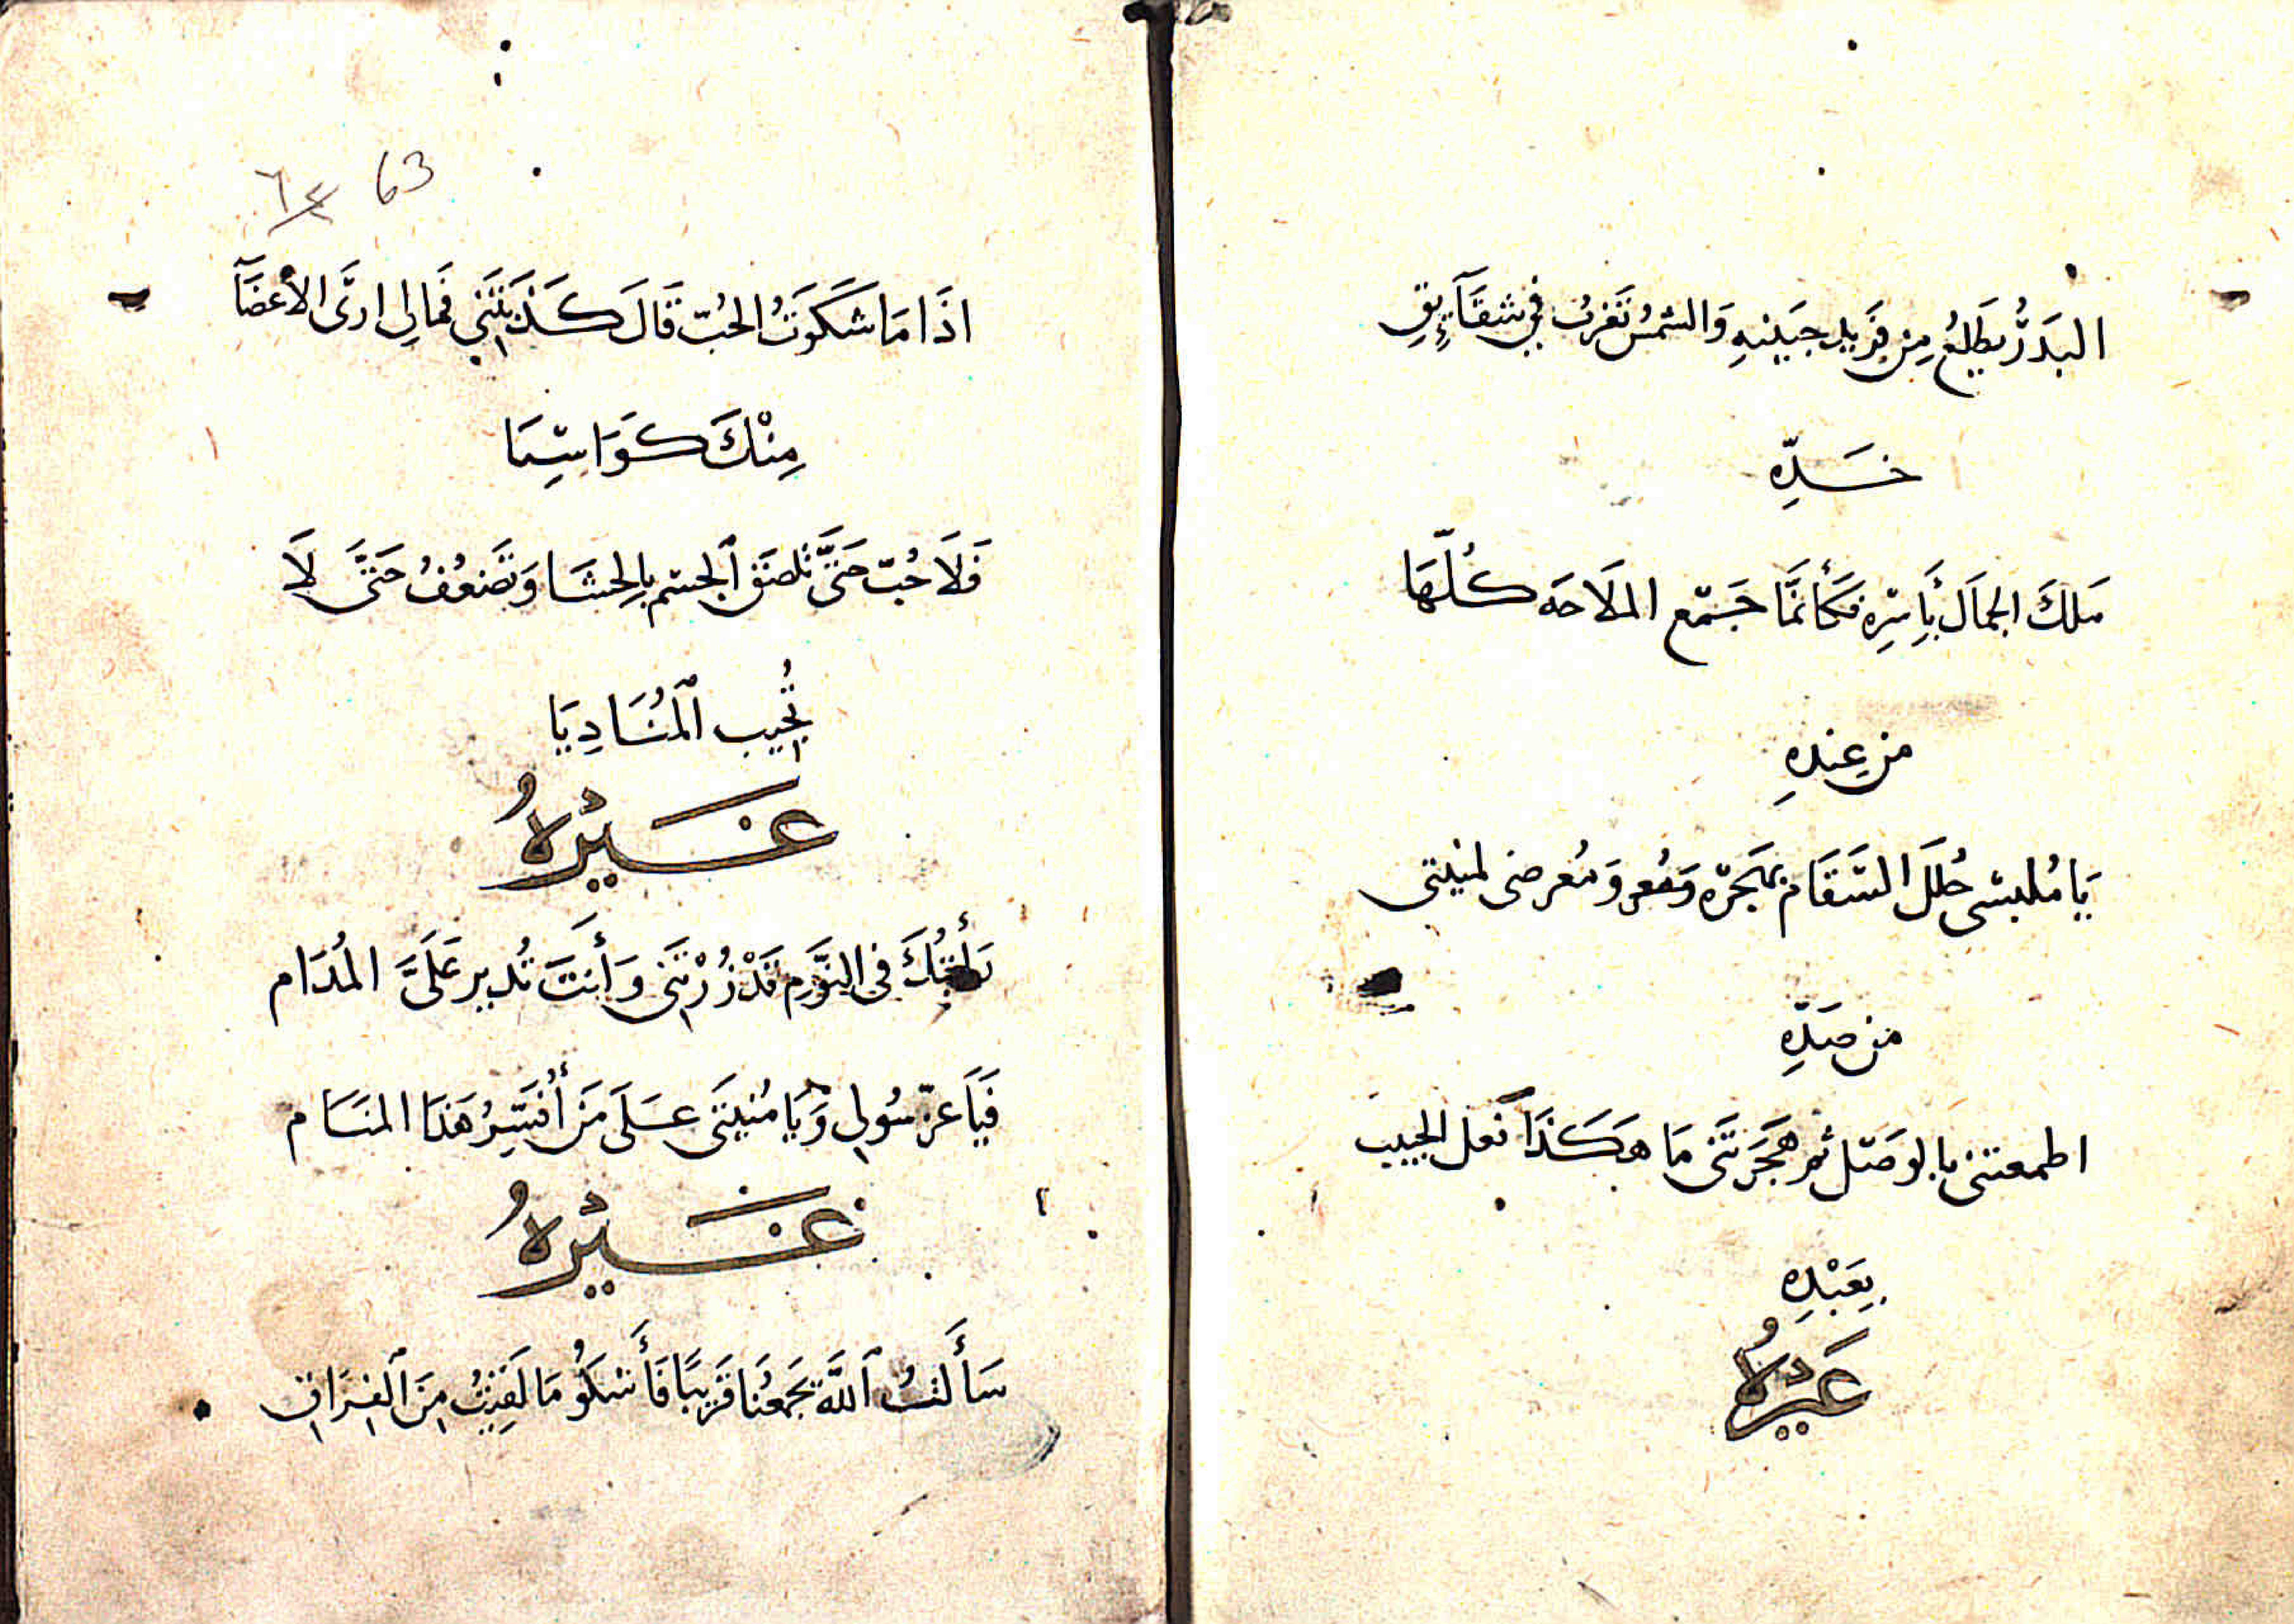 البَدرُ يطلِعُ مِن فريد جبينهِ وَالشمسُ تغربُ في شقآئِقِ
خدِّهِ
ملكَ الجمالَ بأسْرِهِ فكأنمَّا جَمّع الملَاحَه كُلّهَا
من عِندهِ
يَا مُلبسى حُلَلَ السّقَام بهَجْرِه ومُعرضى لمنيتى
من صدِّهِ
اطمعتنى بالوصل ثم هجَرتَنى مَا هكَذَا فَعل الحبيب
بِعَبْدِهِ
غَيْرُهُ
٦٣ 63
اذَا مَا شَكَوتُ الحُبّ قَالَ كَذَبْتَنِي فَمَالِى ارَى الأعضَآ
مِنْكَ كَوَاسِيَا
فَلَا حُبّ حَتَّى تُلصَق ٱلجسْم بِالحشَا وَتَضعُفُ حَتَّى لَا
تُجِيب ٱلْمُنَادِيَا
غَيْرُهُ
رَأَيْتُكَ فى النَّوْمِ قَدْ زُرْتَنى وَأَنتَ تُدير عَلَىَّ المُدَام
فَيَا عزّ سُولى وَيَا مُنيَتى عَلَى مَنْ أُفَسِّرُ هَذَا المنَام
غَيْرُهُ
سَأَلتُ ٱللَّهَ يَجمَعُنَا قَرِيبًا فَأَشكُو مَا لَقِيتُ مِنَ ٱلفِرَاقِ